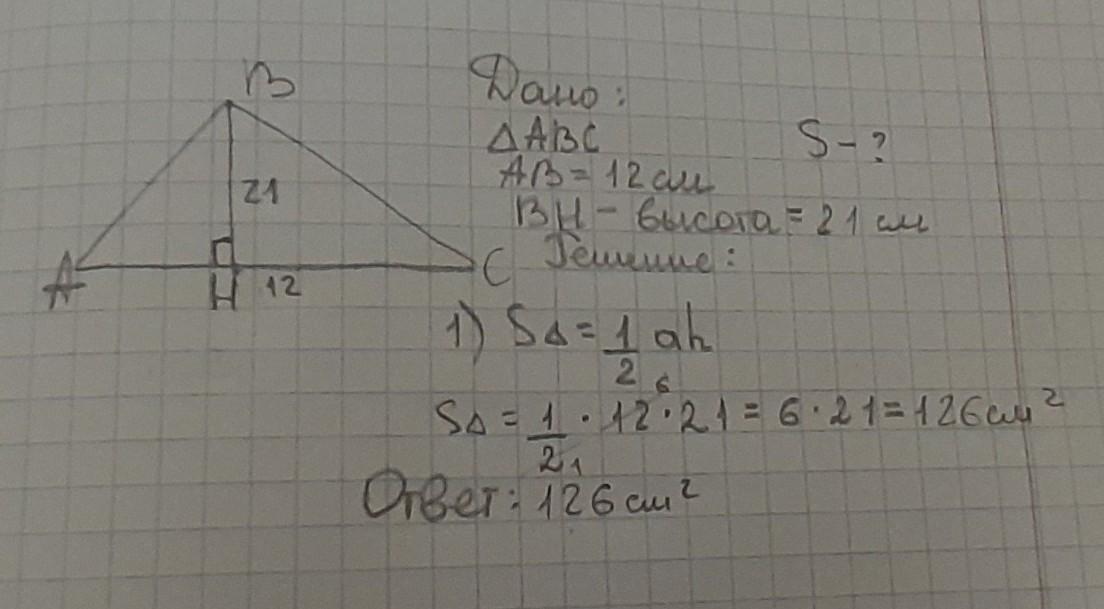 B
21
A
H 12
C
Дано:
ΔABC
S - ?
AB = 12 см
BH - высота = 21 см
Решение:
1) SΔ = 1/2 ah
SΔ = 1/2 1 · 12 6 · 21 = 6 · 21 = 126 см²
Ответ: 126 см²